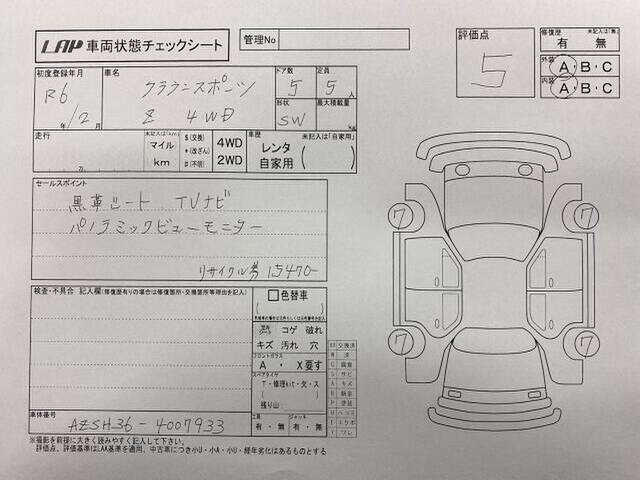 LAP 車両状態チェックシート
管理No
評価点
5
修復歴 未記入は「無」
有 無
外装 A・B・C
内装 A・B・C
初度登録年月
R6
年/2月
車名
クラウンスポーツ
Z 4WD
ドア数 定員
5 5人
形状 最大積載量
SW
走行 未記入は「km」
マイル
km
万
$(交換)
*(改ざん)
#(不明)
4WD
2WD
車歴 未記入は「自家用」
レンタ
自家用
セールスポイント
黒革シート TVナビ
パノラミックビューモニター
リサイクル券 15470-
検査・不具合 記入欄(修復歴有りの場合は修復箇所・交換箇所等理由を記入)
色替車
コゲ 破れ
キズ 汚れ 穴
フロントガラス
A ・ X要す
スペアタイヤ
T・修理kit・欠・ス
残り山
工具 ジャッキ
有・無 有・無
車体番号
AZSH36-4007933
7 7
7 7
XX 交換済
W 波
C 腐食
S サビ
A キズ
P 塗装
U ヘコミ
E エクボ
Y ワレ
※撮影を前提に大きく読みやすく記入して下さい。
評価点、評価基準はLAA基準を適用、中古車につき小U・小A・小U・経年劣化はあるものとする